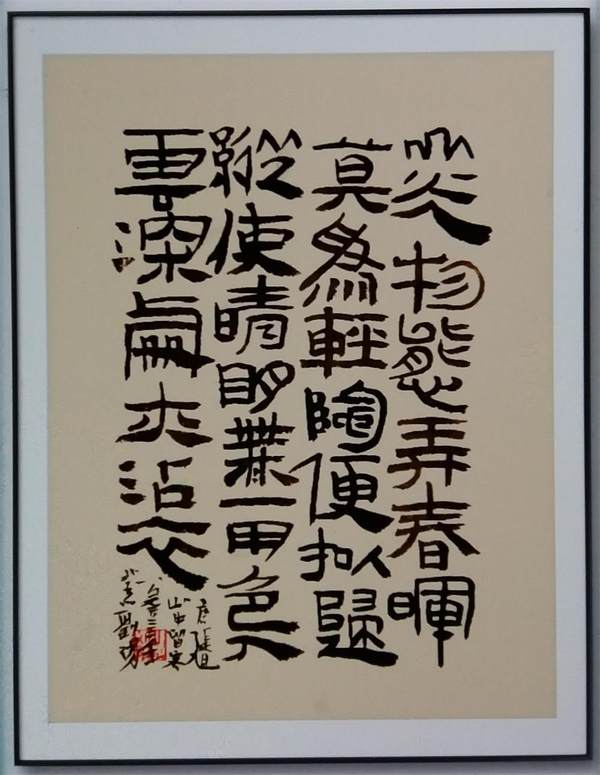 山光物態弄春暉
莫為輕陰便拟歸
縱使晴明無雨色入
雲深處亦沾衣
唐張旭
山中留客